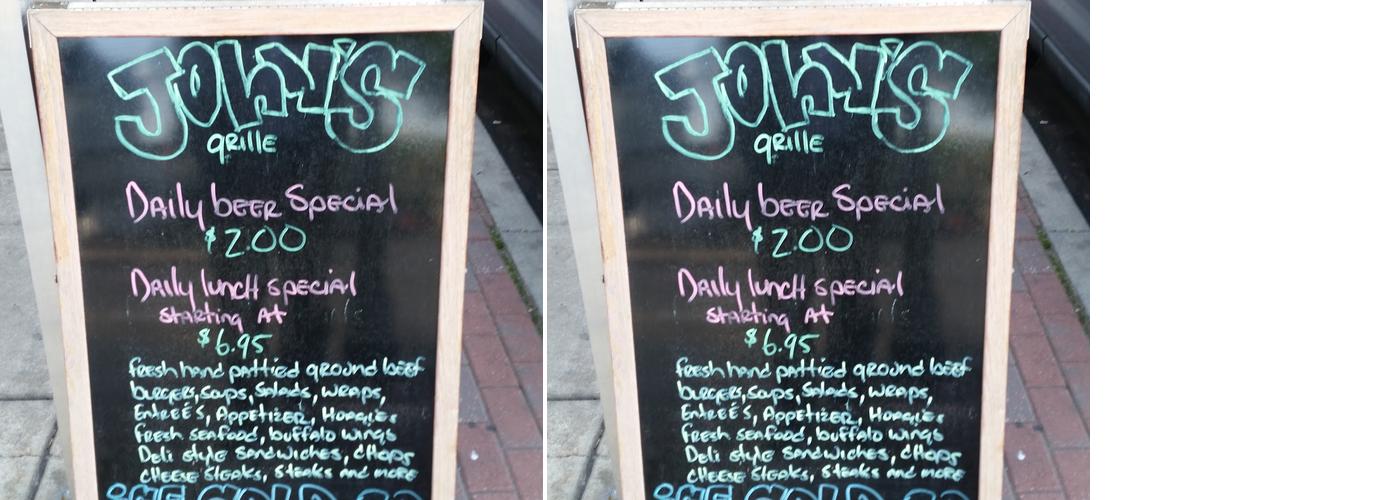 JOHN'S
grille
Daily beer Special
$2.00
Daily lunch special
starting At
$6.95
fresh hand pattied ground beef
burgers, soups, Salads, wraps,
Entreé's, Appetizer, Hoagies
fresh seafood, buffalo wings
Deli style sandwiches, chops
cheese steaks, steaks and more
ice COLD
JOHN'S
grille
Daily beer Special
$2.00
Daily lunch special
starting At
$6.95
fresh hand pattied ground beef
burgers, soups, Salads, wraps,
Entreé's, Appetizer, Hoagies
fresh seafood, buffalo wings
Deli style sandwiches, chops
cheese steaks, steaks and more
ice COLD